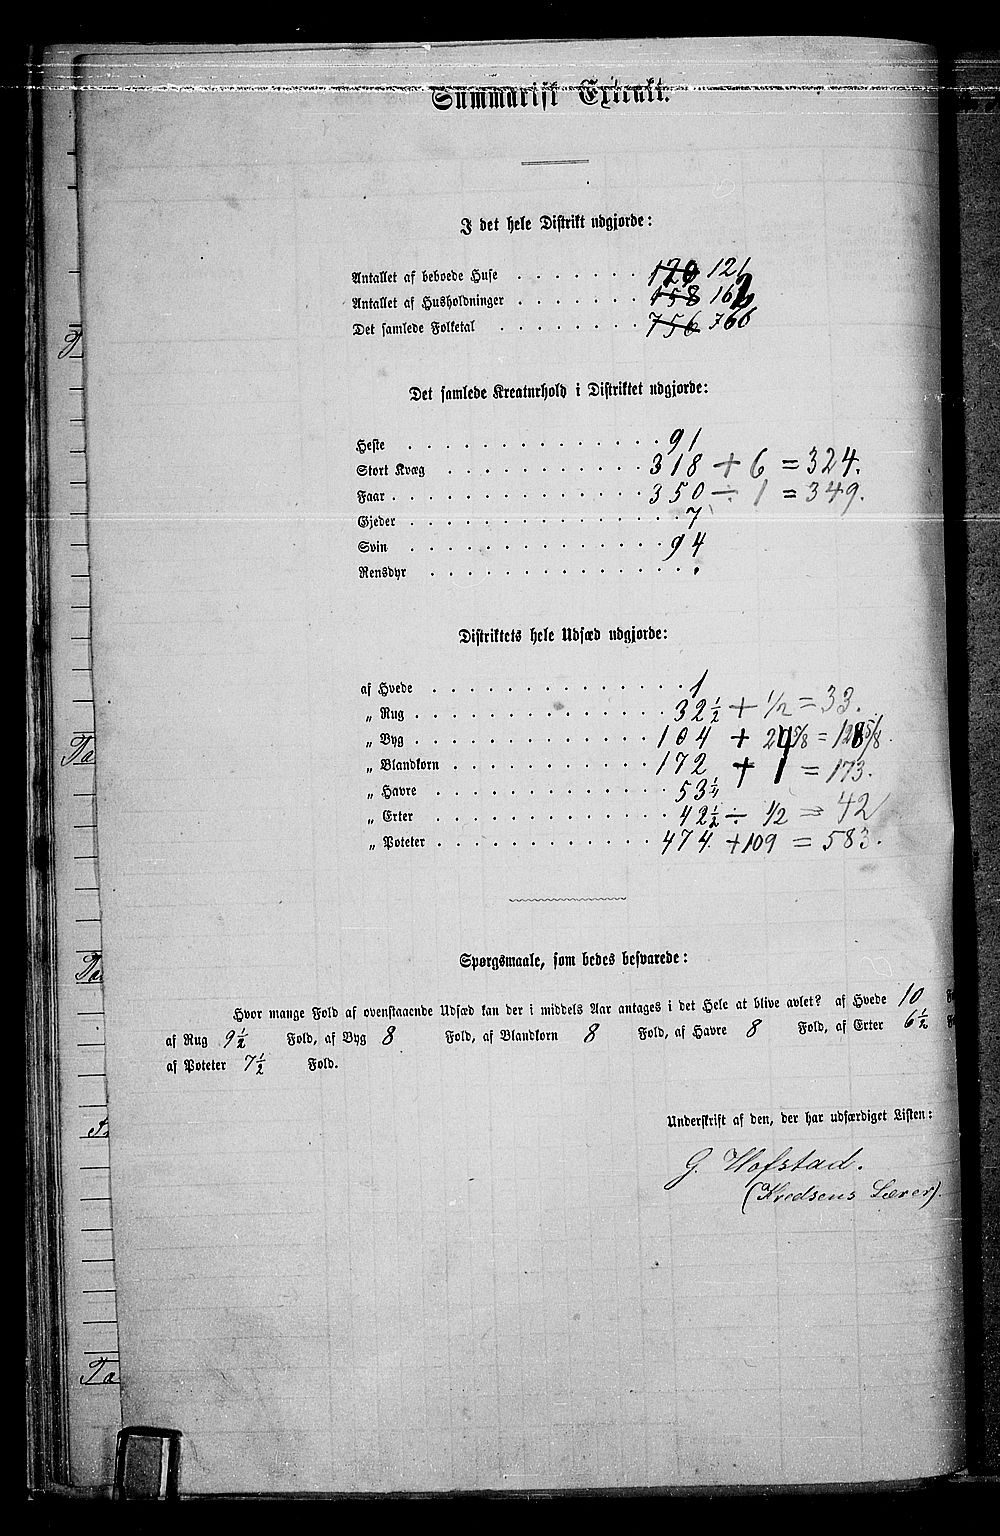 Summarisk Extrakt.
I det hele Distrikt udgjorde:
Antallet af beboede Huse . . . . . . . 120 121
Antallet af Husholdninger . . . . . . . 158 162
Det samlede Folketal . . . . . . . . 756 766
Det samlede Kreaturhold i Distriktet udgjorde:
Heste . . . . . . . . . . . . . . 91
Stort Kvæg . . . . . . . . . . . 318 + 6 = 324.
Faar . . . . . . . . . . . . . . 350 ÷ 1 = 349.
Gjeder . . . . . . . . . . . . . . 7
Svin . . . . . . . . . . . . . . 94
Rensdyr . . . . . . . . . . . . . .
Distriktets hele Udsæd udgjorde:
af Hvede . . . . . . . . . . . . . . 1
„ Rug . . . . . . . . . . . . . 32½ + ½ = 33.
„ Byg . . . . . . . . . . . . . 104 + 24 5/8 = 128 5/8.
„ Blandkorn . . . . . . . . . . 172 + 1 = 173.
„ Havre . . . . . . . . . . . . 53¼
„ Erter . . . . . . . . . . . . 42½ ÷ ½ = 42
„ Poteter . . . . . . . . . . . 474. +109 = 583.
Spørgsmaale, som bedes besvarede:
Hvor mange Fold af ovenstaaende Udsæd kan der i middels Aar antages i det Hele at blive avlet? af Hvede 10
af Rug 9½ Fold, af Byg 8 Fold, af Blandkorn 8 Fold, af Havre 8 Fold, af Erter 6½
af Poteter 7½ Fold.
Underskrift af den, der har udfærdiget Listen:
G. Hofstad.
(Kredsens Lærer).